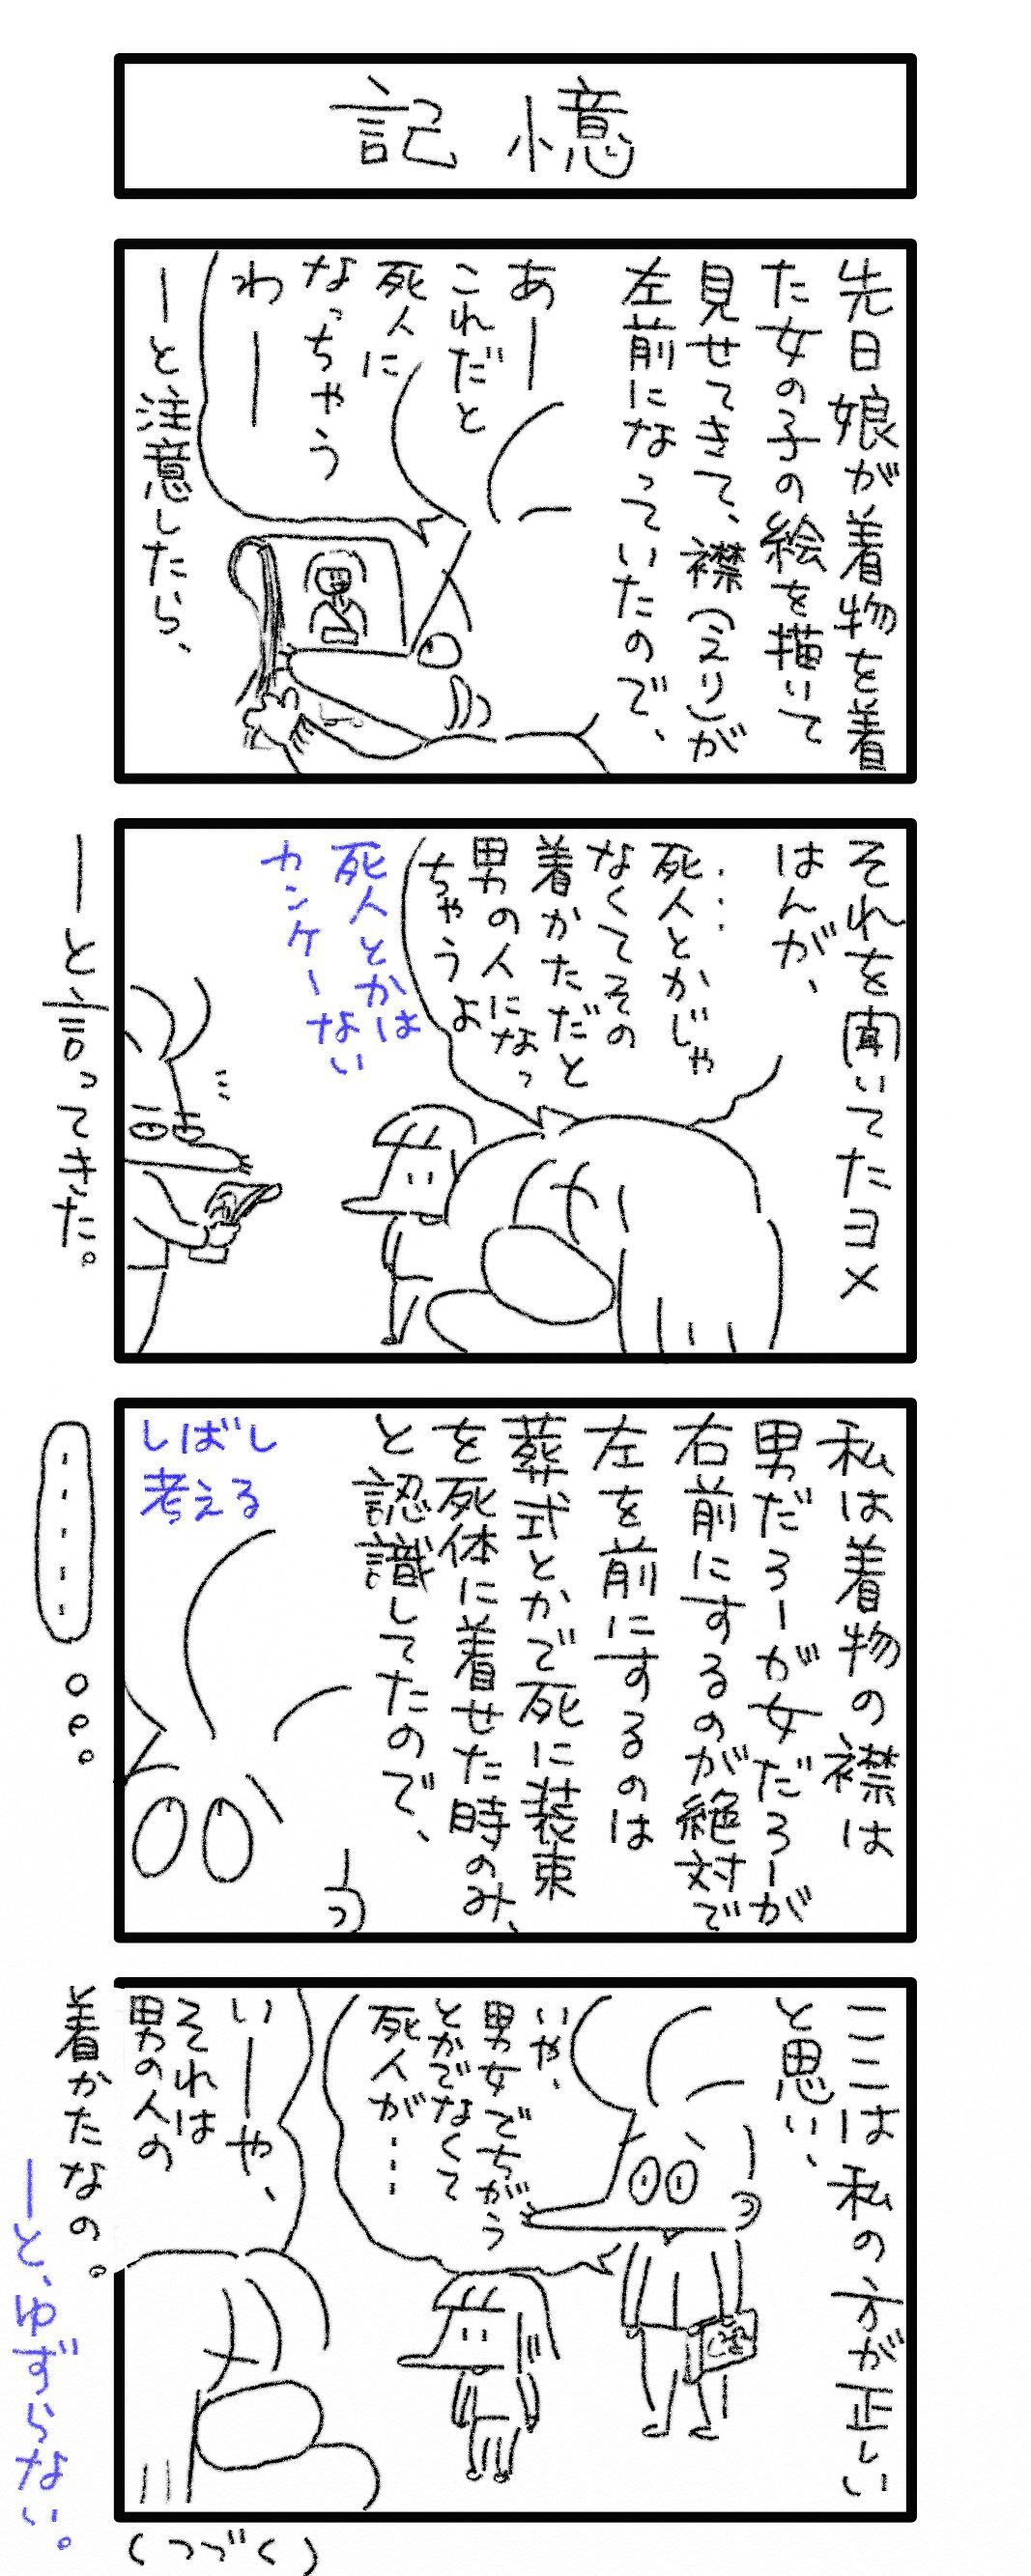 記憶
先日娘が着物を着
た女の子の絵を描いて
見せてきて、襟(えり)が
左前になっていたので、
あー
これだと
死人に
なっちゃう
わー
ーと注意したら、
それを聞いてたヨメ
はんが、
・・・
死人とかじゃ
なくてその
着かただと
男の人になっ
ちゃうよ
死人とかは
カンケーない
ーと言ってきた。
私は着物の襟は
男だろーが女だろーが
右前にするのが絶対で
左を前にするのは
葬式とかで死に装束
を死体に着せた時のみ、
と認識してたので、
しばし
考える
・・・・・
ここは私の方が正しい
と思い、
いや、
男女でちがう
とかでなくて
死人が・・・
いーや、
それは
男の人の
着かたなの。
ーと、ゆずらない。
(つづく)